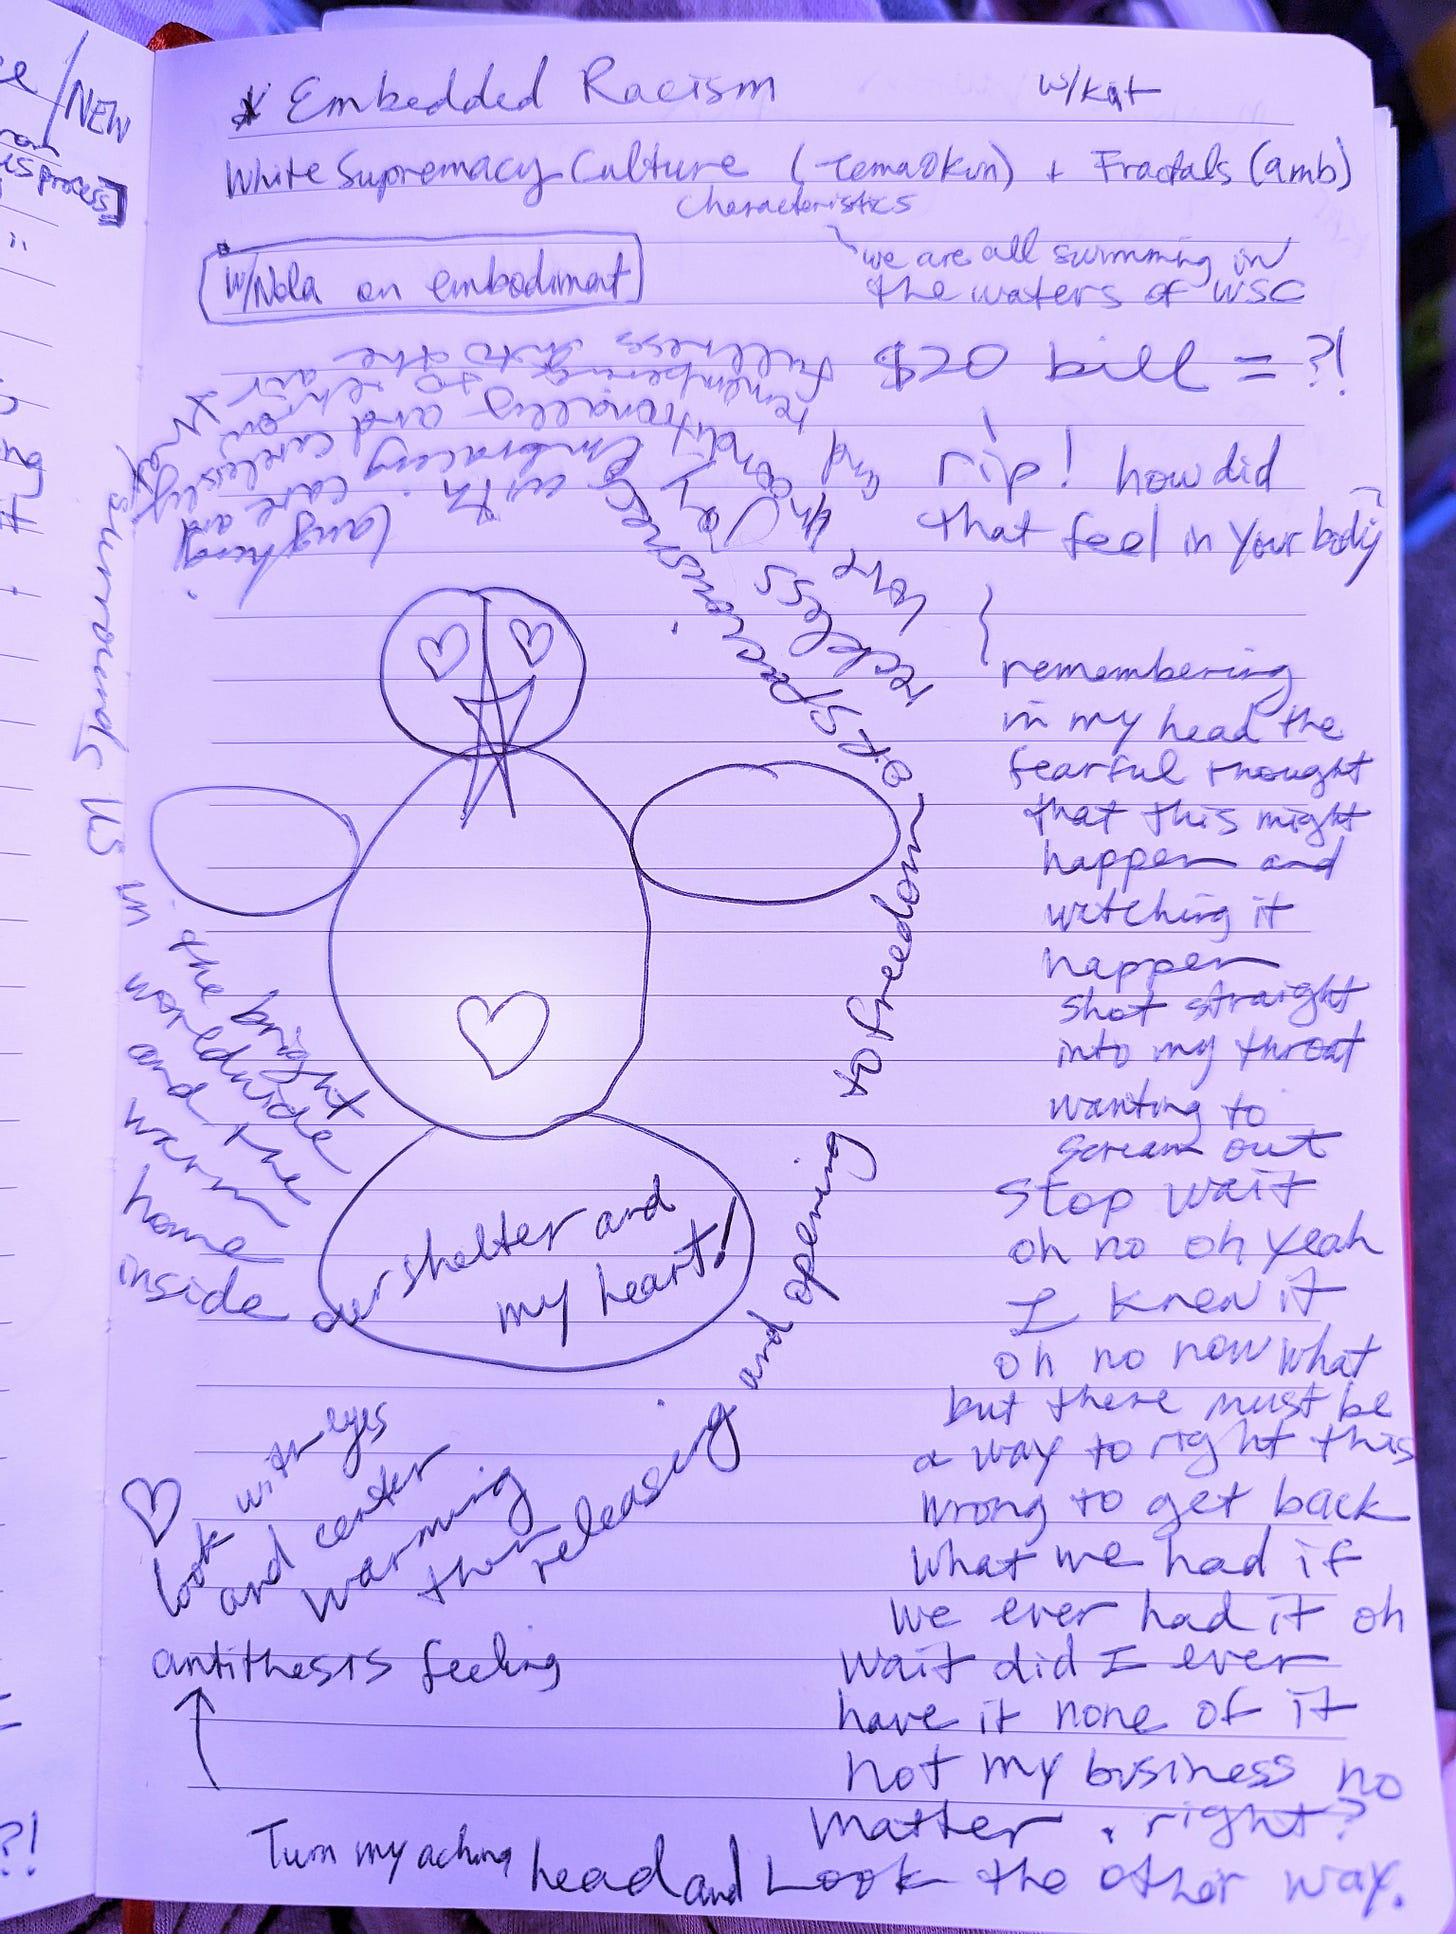 * Embedded Racism w/kat
White Supremacy Culture (Tema Okun) + Fractals (amb)
characteristics
we are all swimming in
the waters of WSC
w/Nola on embodiment
$20 bill = ?!
rip! how did
that feel in your body?
remembering
in my head the
fearful thought
that this might
happen and
watching it
happen
shot straight
into my throat
wanting to
scream out
stop wait
oh no oh yeah
I knew it
oh no now what
but there must be
a way to right this
wrong to get back
what we had if
we ever had it oh
wait did I ever
have it none of it
not my business no
matter, right?
Turn my aching head and Look the other way.
antithesis feeling
look with eyes
and center
warming
then releasing and opening to freedom
of spaciousness
reckless joy
love unconditionally
and remembering
fullness into the
to echo
air
embracing and carelessly
with care and
laughing
surrounds us
in the bright
worldwide
and the
warm
home
inside
our shelter and
my heart!
/NEW
process]
?!